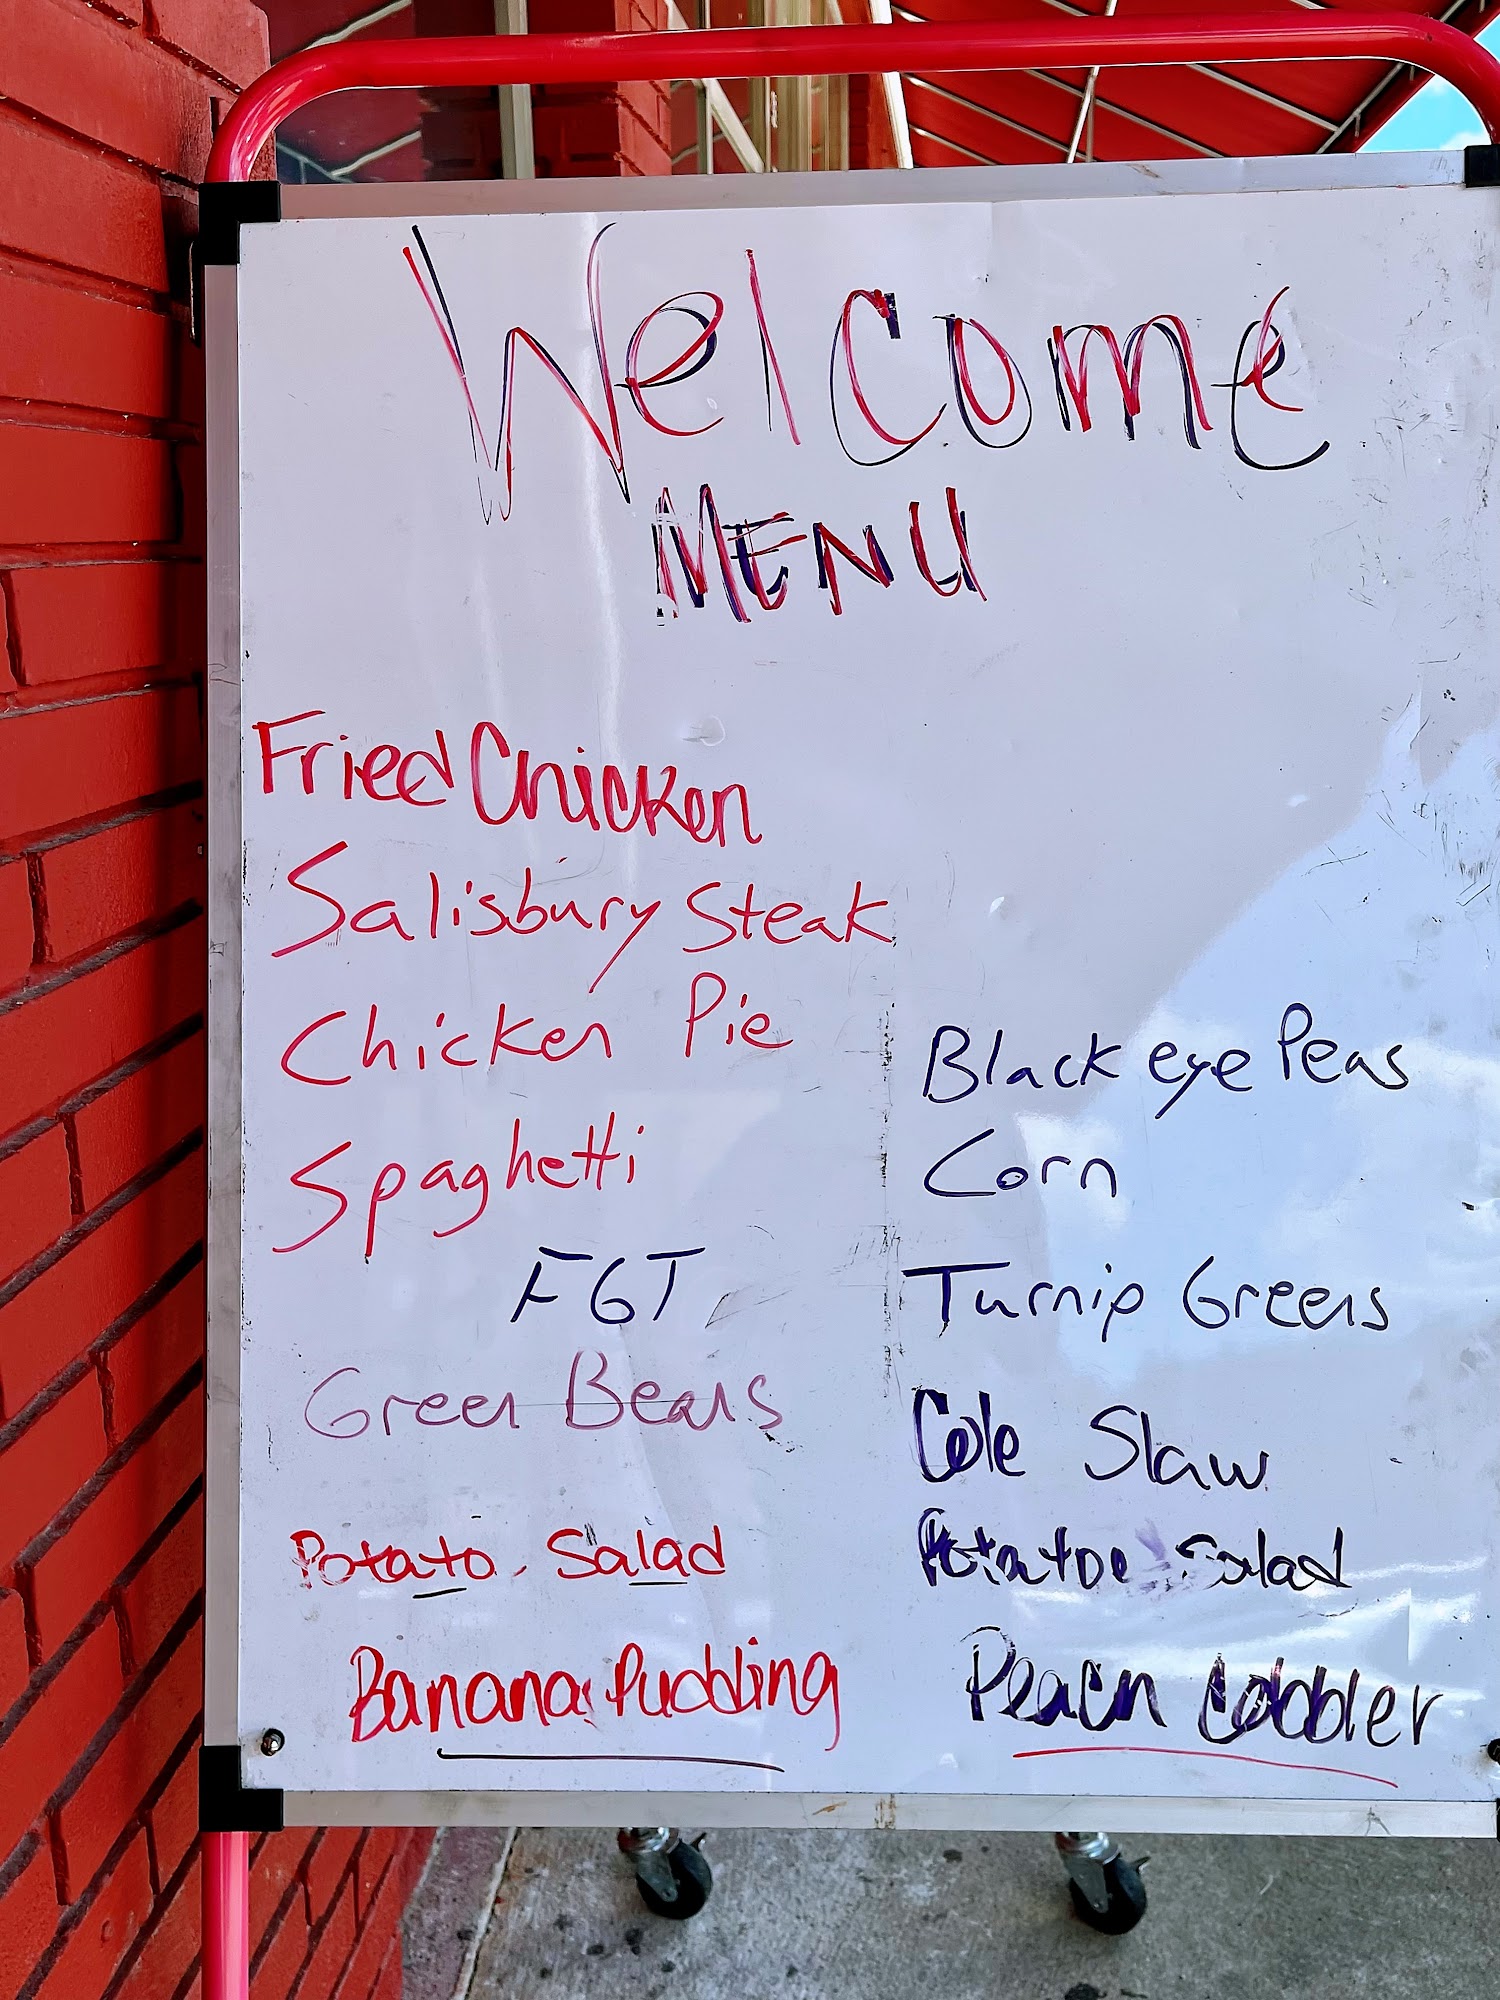 Welcome
MENU
Fried Chicken
Salisbury Steak
Chicken Pie
Spaghetti
FGT
Green Beans
Potato Salad
Banana Pudding
Black eye Peas
Corn
Turnip Greens
Cole Slaw
Potatoe Salad
Peach Cobbler